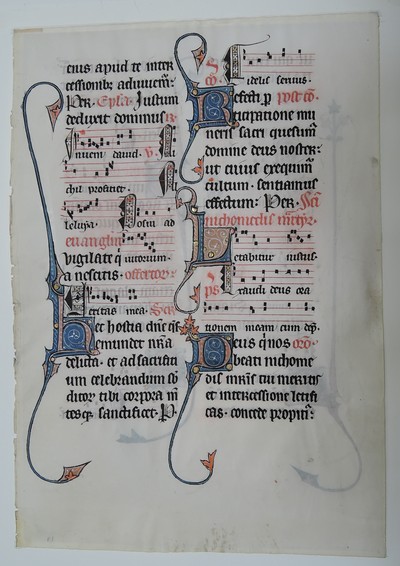 eius apud te inter
cessionib; adiuvem̄:
Per. Ep̄la. Iustum
deduxit dominus. R.
Inveni david. V. Ni
chil proficiet.
lleluya. Posui ad
euangliū
Vigilate q̄
a nescitis. offertor̄:
Veritas mea. Secr̄
Hec hostia dn̄e q̄s
emundet nr̄a
delicta. et ad sacrifici
um celebrandum sb̄
ditor̄ tibi corpora m̄
tesq; sanctificet. P.
S.
cō. Fidelis servus.
Refecti. p̄ post cō.
ticipatione mu
neris sacri quesum̄
domine deus noster:
ut cuius exequim̄
cultum. sentiamus
effectum. Per. Sc̄i
nichomedis m̄rtyr.
Letabitur iustus.
ps̄
Exaudi deus ora
tionem meam cum dep̄.
Deus q̄ nos orō.
beati nichome
dis mr̄is tui meritis
et intercessione letifi
cas. concede propiti⁹: